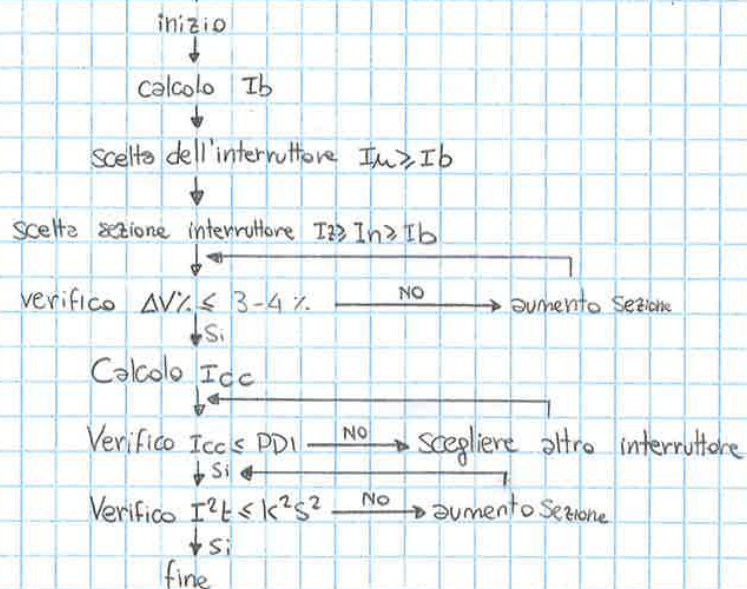 inizio
calcolo Ib
scelta dell'interruttore In ≥ Ib
scelta sezione interruttore Iz ≥ In ≥ Ib
verifico ΔV% ≤ 3-4 % NO aumento sezione
Si
Calcolo Icc
Verifico Icc ≤ PDI NO scegliere altro interruttore
Si
Verifico I²t ≤ k²S² No aumento Sezione
Si
fine